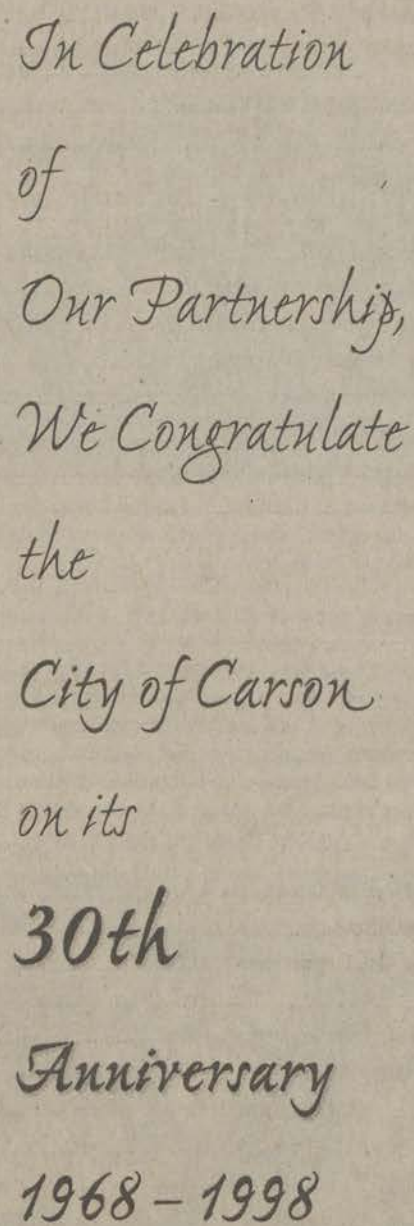 In Celebration
of
Our Partnership,
We Congratulate
the
City of Carson
on its
30th
Anniversary
1968 – 1998